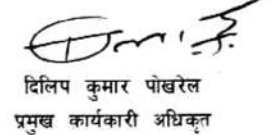 दिलिप कुमार पोखरेल
प्रमुख कार्यकारी अधिकृत